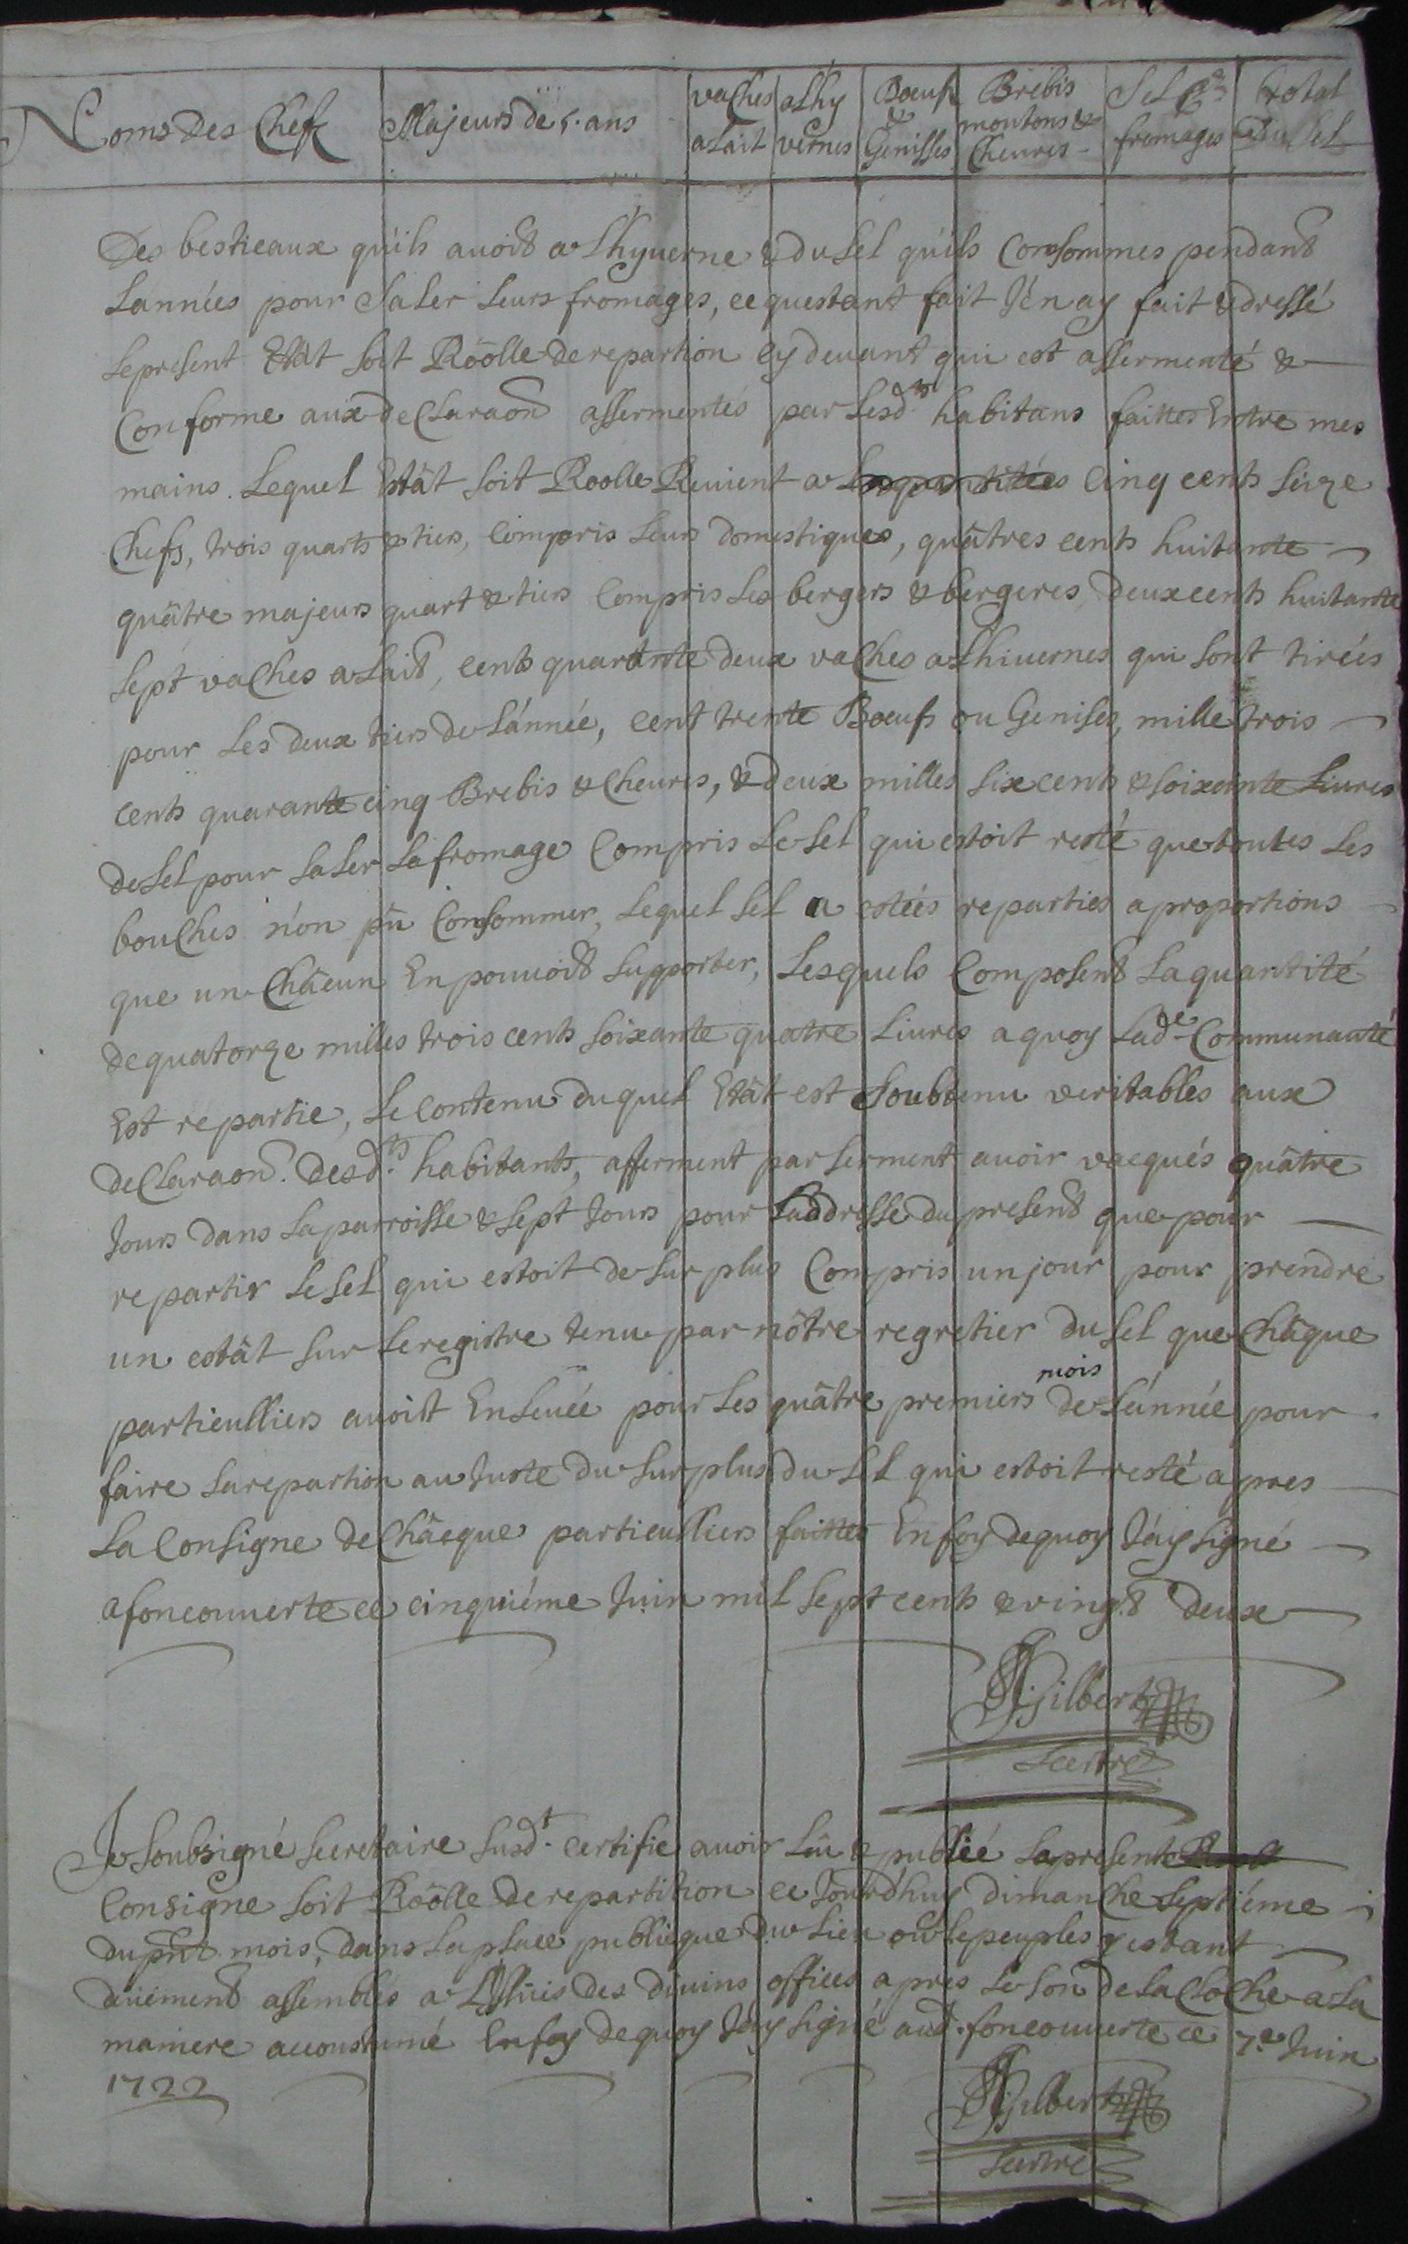 Noms Des Chefs
Majeurs de 5. ans
vaches alait
alhy vernes
Boeufs & Genisses
Brebis moutons & Cheures
Sel pr. fromages
total du sel
Des bestieaux qu'ils auoit a Lhyuerne & du sel qu'ils Consommes pendant
Lannées pour saler Leurs fromages, ce questant fait J'en ay fait & dressé
Lepresent Etât soit Röolle de repartion cy deuant qui est assermenté &
Conforme aux declaraon assermentés par Lesd.ts habitans faittes Entre mes
mains. Lequel Estât soit Roolle Reuient a Cinq cents seize
Chefs, trois quarts & tiers, Compris Leurs domestiques, quâtres cents huitante
quâtre majeurs quart & tiers Compris Les bergers & bergeres, deuxcents huitante
sept vaches a Lait, cents quarante deux vaches a Lhiuernes qui sont tirées
pour Les deux tiers de L'année, cent trente Boeufs ou Genises, mille trois
cents quarante cinq Brebis & Cheures, & deux milles six cents & soixante Liures
de sel pour saler La fromage Compris Le sel qui estoit resté que toutes Les
bouches n'on pû Consommer, Lequel sel a estées reparties a proportions
que un Châcun En pouuoit supporter, Lesquels Composent La quantité
de quatorze milles trois cents soixante quatre Liures a quoy Lad.e Communauté
Est repartie, Le Contenu duquel Etât est soubtenu veritables aux
declaraon. desd.ts habitants, afferment par serment auoir vacqués quâtre
Jours dans La parroisse & sept Jours pour Laddresse du present que pour
repartir Le sel qui estoit de surplus Compris un jour pour prendre
un estât sur Le registre tenu par nôtre regretier du sel que châque
particulliers auoist Enleuée pour Les quâtre premiers mois de L'année pour
faire La repartion au Juste du surplus du sel qui estoit resté apres
La Consigne de Châcque particulliers faittes En foy dequoy J'ay signé
a foncouuerte ce cinquiéme Juin mil sept cents & vingt deux
Gilbert
secrtre
Je soubsigné secretaire susd.t certifie auoir Lûu & publiée La presente
Consigne soit Röolle de repartition ce Jourd'huy dimanche septiéme
du pnt. mois, dans La place publicque du Lieu ou Le peuples y estant
deüement assemblés a L'issüe des diuins offices apres Le son de La Cloche a La
maniere accoustumé En foy dequoy J'ay signé aud. foncouuerte ce 7.e Juin
1722
Gilbert
secrtre